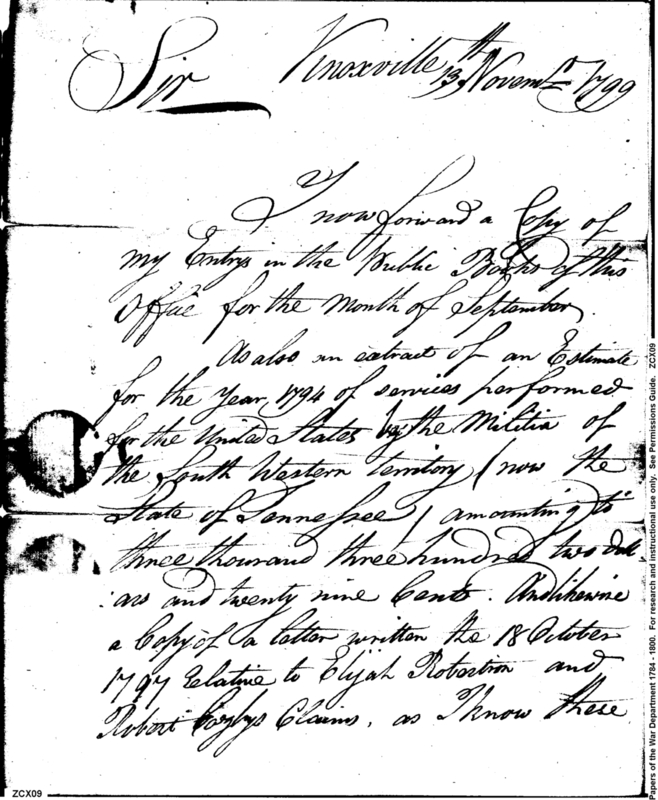 Sir
Knoxville 13th Novemr 1799
I now forward a Copy of
my Entrys in the Public Books of this
Office for the Month of September,
As also an extract of an Estimate
for the Year, 1794 of services performed
for the United States by the Militia of
the South Western territory (now the
State of Tennessee) amounting to
three thousand three hundred two doll
:ars and twenty nine Cents. And likewise
a Copy of a letter written the 18 October
1797 relative to Elijah Robertson and
Robert Claims, as I know these
ZCX09
Papers of the War Department 1784 - 1800. For research and instructional use only. See Permissions Guide. ZCX09